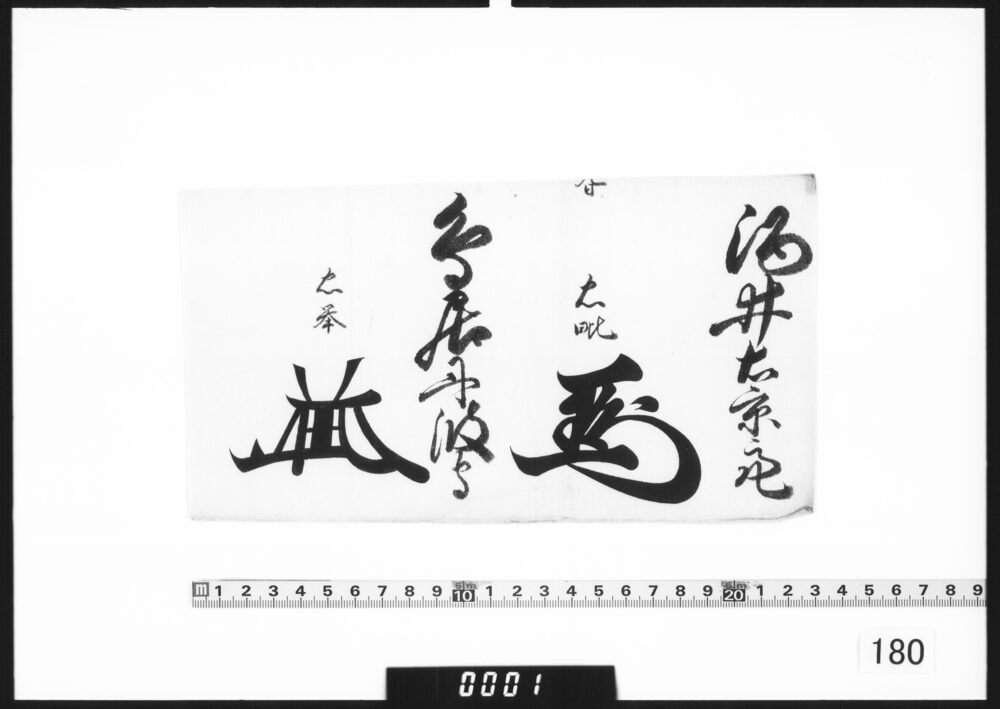 酒井右京亮
忠毗
鳥居丹波守
忠挙
m 1 2 3 4 5 6 7 8 9 10 1 2 3 4 5 6 7 8 9 20 1 2 3 4 5 6 7 8 9
180
0001